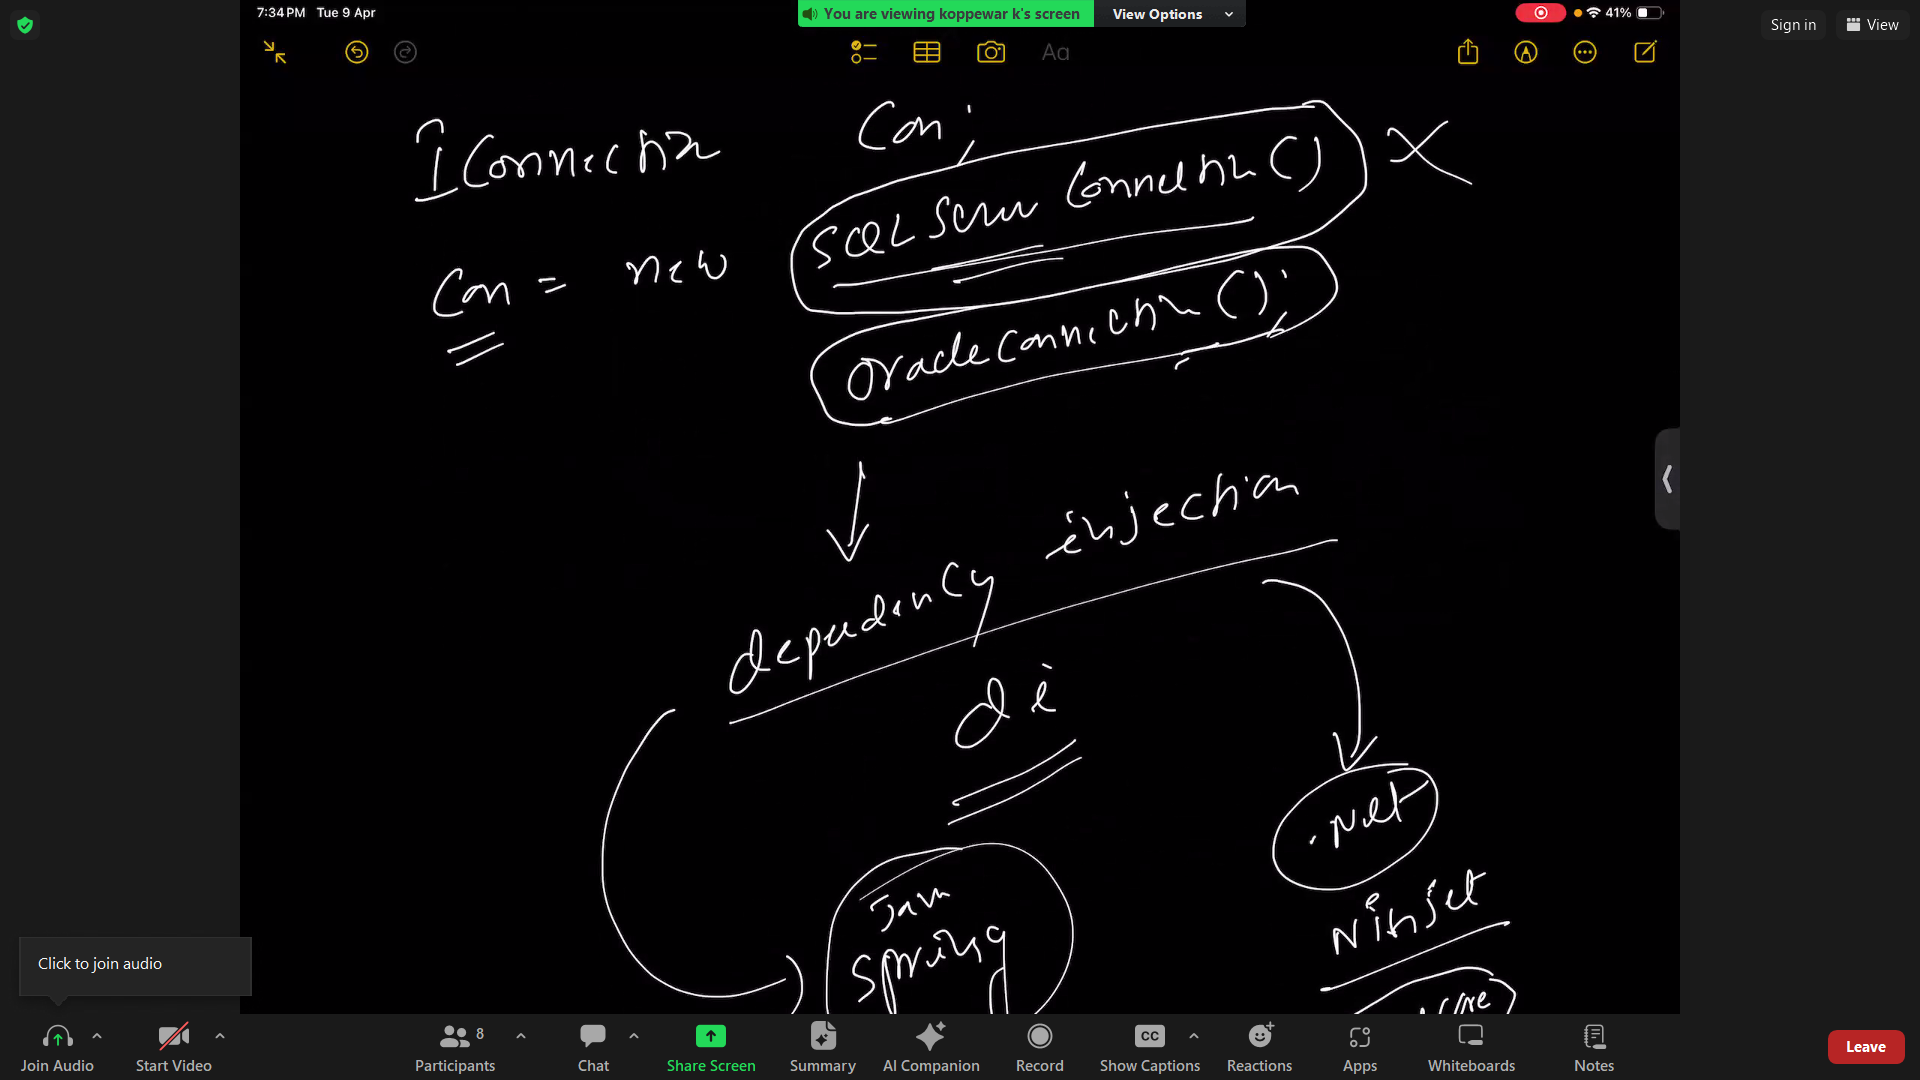 7:34 PM Tue 9 Apr
You are viewing koppewar k's screen
View Options
41%
Sign in
View
Aa
IConnection Con;
SQLServer Connection()
Con = new
OracleConnection();
dependency injection
di
.Net
Java
Spring
Ninject
Core
Click to join audio
8
CC
Join Audio
Start Video
Participants
Chat
Share Screen
Summary
AI Companion
Record
Show Captions
Reactions
Apps
Whiteboards
Notes
Leave